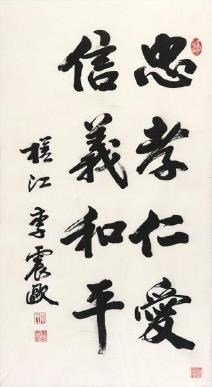 忠孝仁愛
信義和平
李震歐